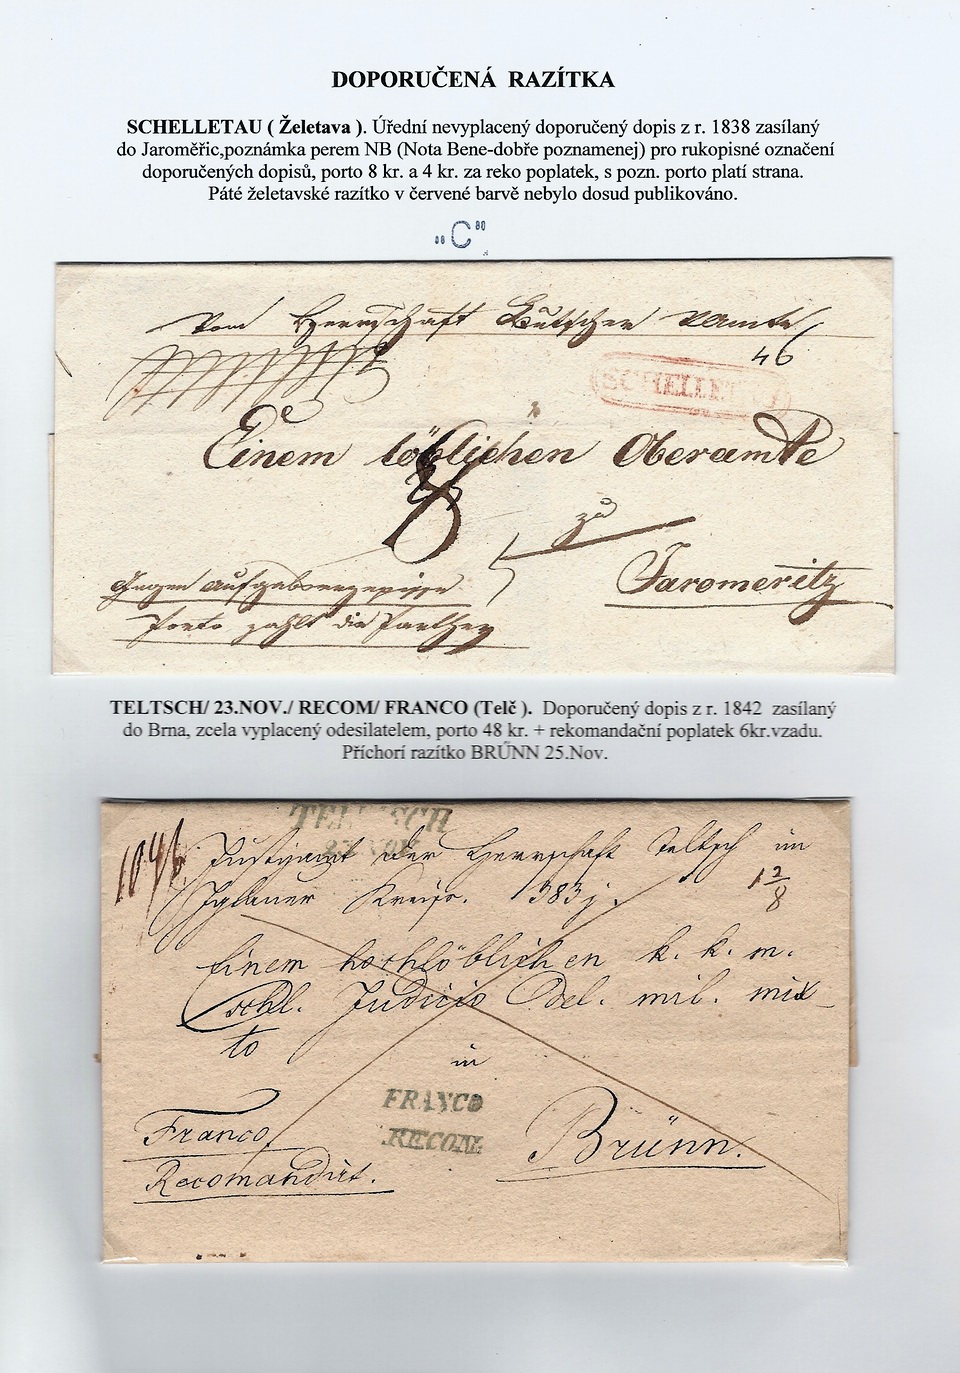 DOPORUČENÁ RAZÍTKA
SCHELLETAU ( Želetava ). Úřední nevyplacený doporučený dopis z r. 1838 zasílaný
do Jaroměřic,poznámka perem NB (Nota Bene-dobře poznamenej) pro rukopisné označení
doporučených dopisů, porto 8 kr. a 4 kr. za reko poplatek, s pozn. porto platí strana.
Páté želetavské razítko v červené barvě nebylo dosud publikováno.
"C"
Vom Herrschaft
46
SCHELLETAU
Einem löblichen Oberamte
8
zu
Jaromeritz
Gegen
Porto zahlt die Parthey
TELTSCH/ 23.NOV./ RECOM/ FRANCO (Telč ). Doporučený dopis z r. 1842 zasílaný
do Brna, zcela vyplacený odesilatelem, porto 48 kr. + rekomandační poplatek 6kr.vzadu.
Příchorí razítko BRŰNN 25.Nov.
TELTSCH
23 NOV.
Justizamt der Herrschaft Teltsch im
Iglauer Kreise. 383j.
1 2/8
Einem hochlöblichen k. k. m.
schl. Judicio Del. mil. mix
to
in
FRANCO
RECOM.
Franco
Brünn.
Recomandirt.